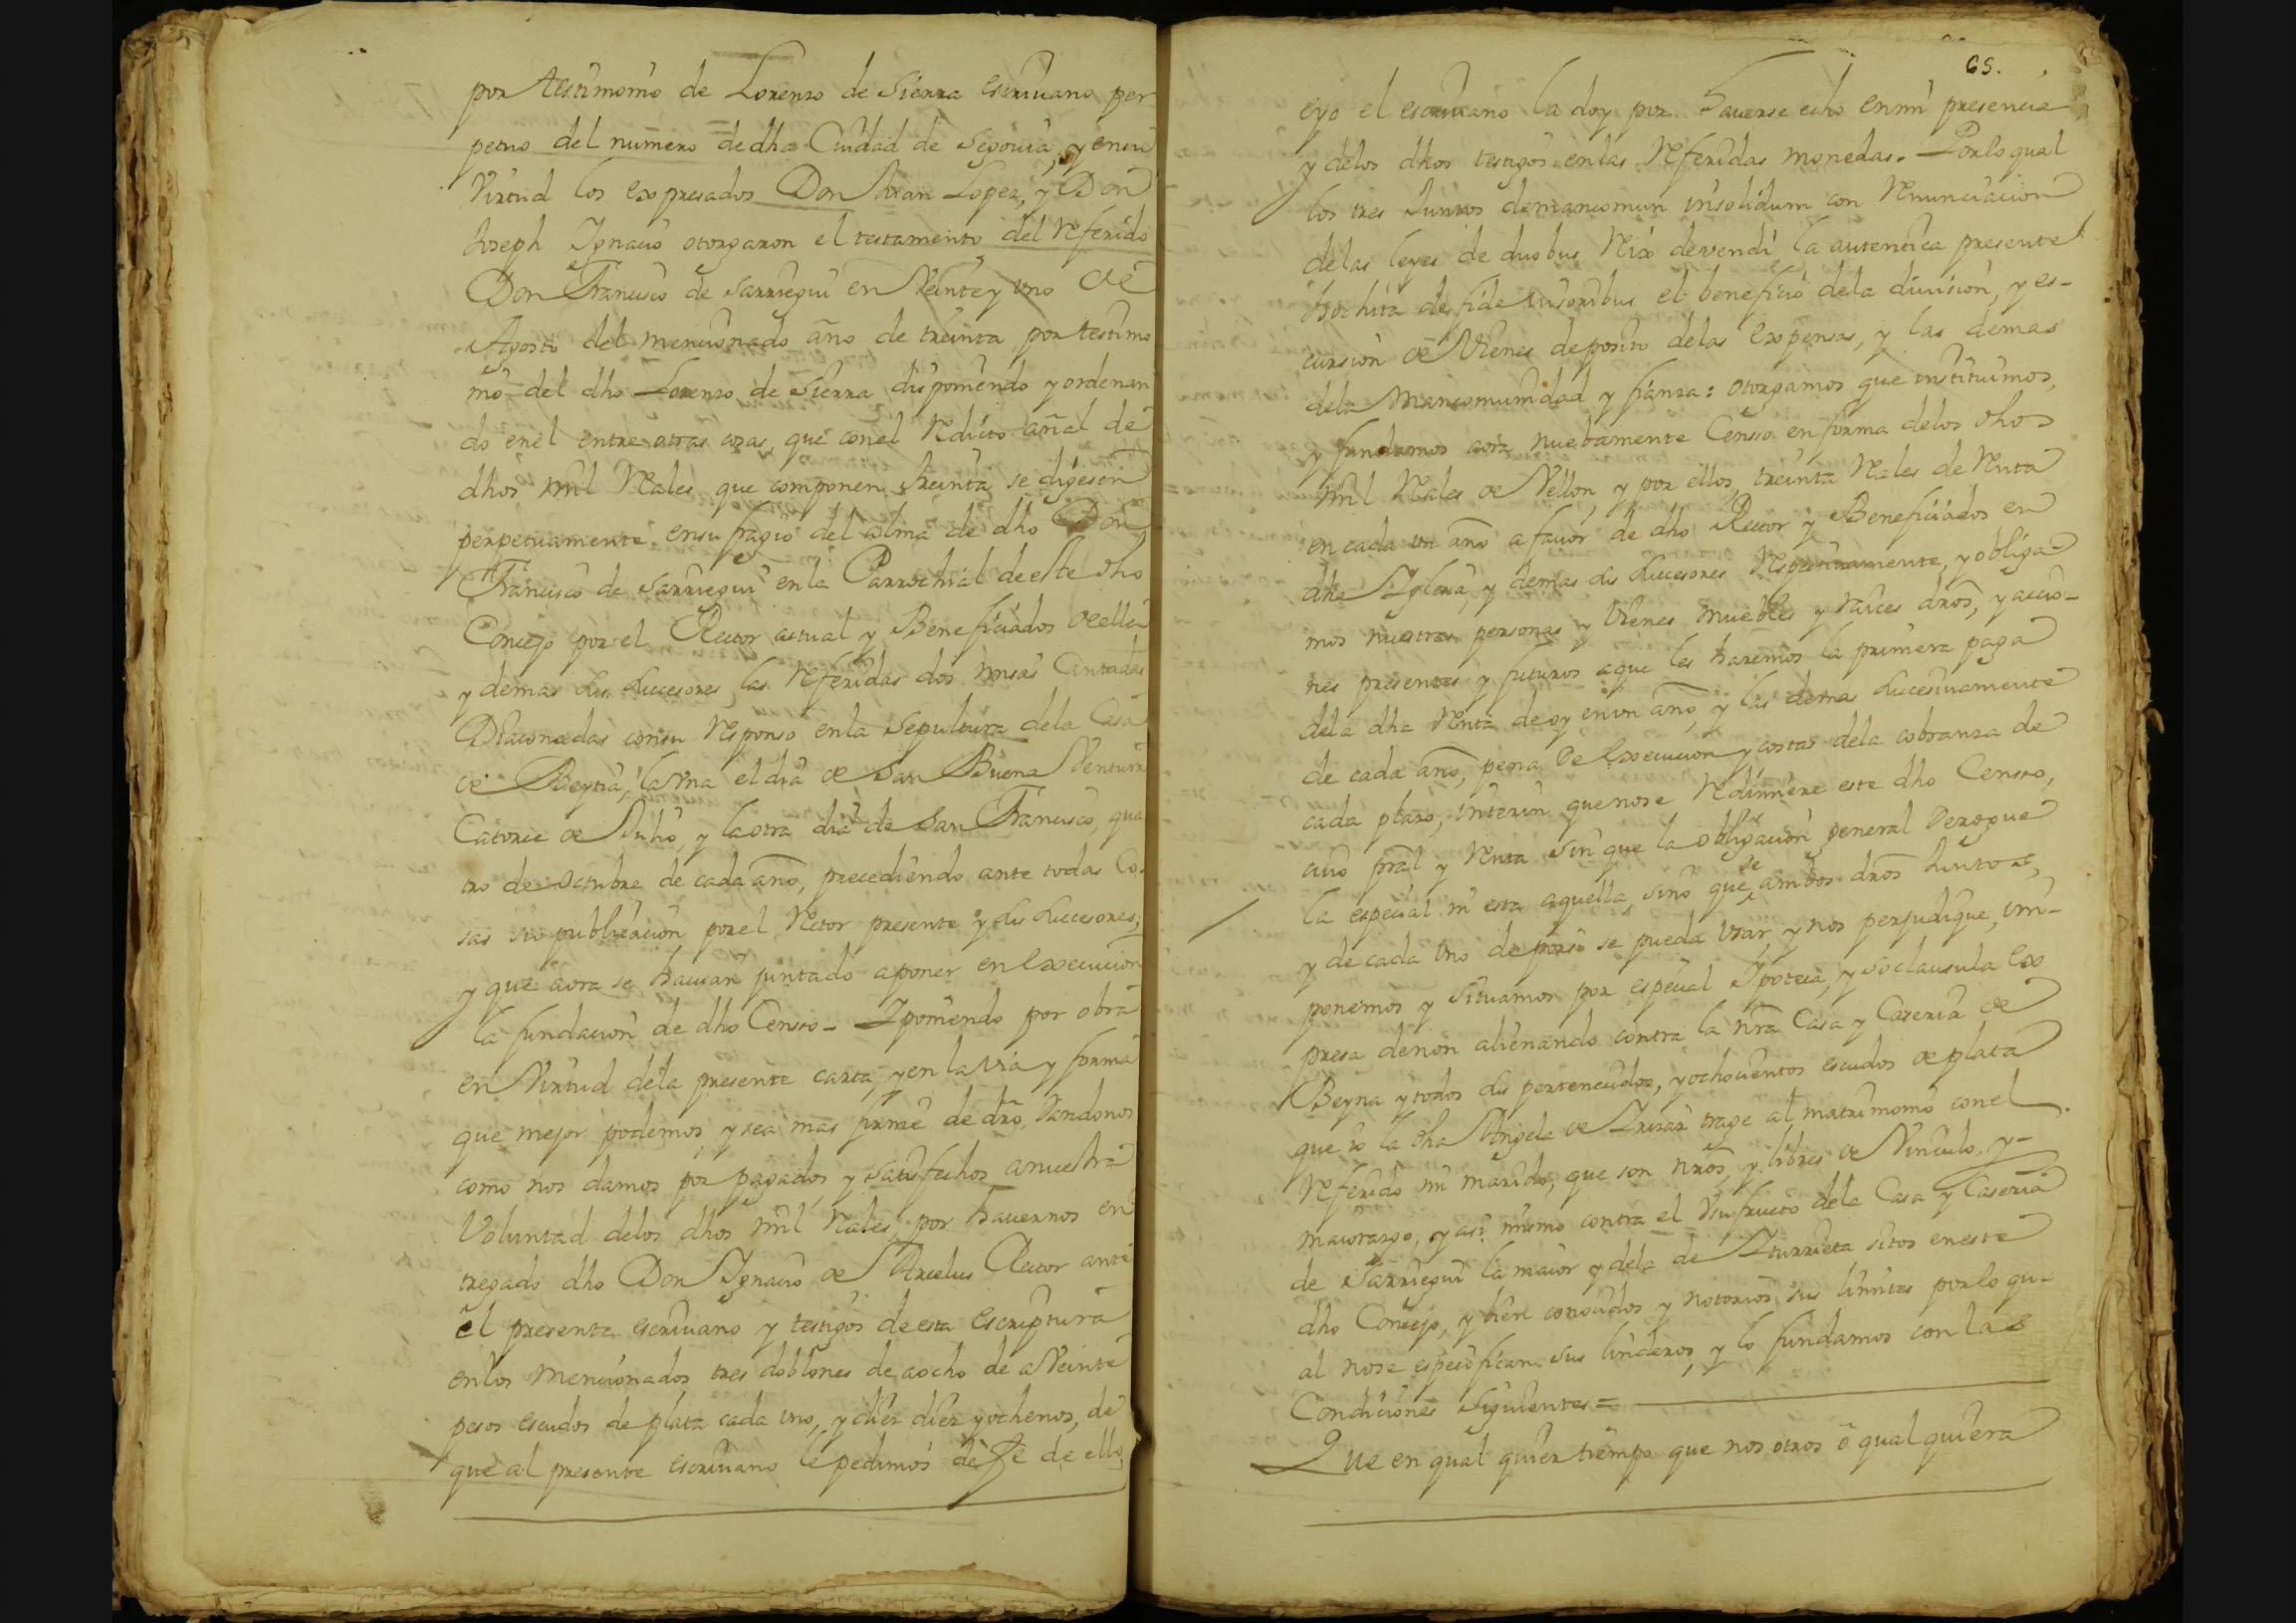 por testimonio de Lorenzo de Sierra escriuano per
petuo del numero de dha Ciudad de Segouia, y en su
Virtud los expresados Don Juan Lopez, y Don
Joseph Ignacio otorgaron el testamento del referido
Don Francisco de Sarriegui en Veinte y uno de
Agosto del mencionado año de treinta por testimo
nio del dho Lorenzo de Sierra disponiendo y ordenan
do en el entre otras cosas, que con el redito añal de
dhos mil Reales que componen treinta se digesen
perpetuamente en sufragio del alma de dho Don
Francisco de Sarriegui en la Parrochial de este dho
Concejo por el Rector actual y Beneficiados de ella
y demas sus succesores las referidas dos misas Cantadas
Diaconadas con su responso en la sepultura de la Casa
de Beyna, la Vna el dia de San Buena Ventura
Catorce de Julio, y la otra dia de San Francisco, qua
tro de Octubre de cada año, precediendo ante todas Co
sas su publicacion por el Retor presente y sus succesores,
y que aora se hauian juntado a poner en execucion
la fundacion de dho Censo = Iponiendo por obra
en Virtud dela presente carta, y en la via y forma
que mejor podemos, y sea mas firme de dro, Dandonos
como nos damos por pagados y satisfechos a nuestra
Voluntad delos dhos mil Reales, por hauernos en
tregado dho Don Ignacio de Arcelus Rector ante
el presente escriuano y testigos de esta escriptura
en los mencionados tres doblones de a ocho de a Veinte
pesos escudos de plata cada uno, y diez diez y ochenos, de
que al presente escriuano le pedimos de fe de ello,
65.
eyo el escriuano la doy por hauerse echo en mi presencia
y delos dhos testigos en las referidas monedas. Por lo qual
los tres Juntos de mancomun insolidum con renunciacion
de las leyes de duobus Reix devendi la autentica presente
hochita de fide iusoribus el beneficio dela diuision, y es-
cursion de Vienes deposito delas expensas, y las demas
dela mancomunidad y fianza: otorgamos que instituimos,
y fundamos aora nuebamente Censo en forma delos dhos
mil Reales de Vellon, y por ellos, treinta Reales de renta
en cada un año a fauor de dho Rector y Beneficiados en
dha Iglesia, y demas sus succesores respectiuamente, y obliga-
mos nuestras personas y vienes muebles y raices dros, y accio-
nes presentes y futuros a que les haremos la primera paga
dela dha renta de oy en un año, y las demas succesiuamente
de cada año, pena de execucion y costas dela cobranza de
cada plazo, interin que no se redimiere este dho Censso,
cuio pral y renta sin que la obligacion general derogue
la especial ni esta aquella, sino que se ambos dros Juntos,
y de cada uno de por si se pueda usar, y nos perjudique, im-
ponemos y situamos por especial Ypoteca, y so clausula ex
presa de non alienando contra la nra Casa y Caseria de
Beyna y todos sus pertenecidos, y ochocientos escudos de plata
que io la dha Angela de Irizar trage al matrimonio con el
referido mi marido, que son nros, y libres de Vinculo, y-
maiorazgo, y asi mismo contra el Vsufructo dela Casa y Caseria
de Sarriegui la maior y dela de Iturrieta sitos en este
dho Concejo, y bien conocidos y notorios sus limites por lo qu-
al no se especifican sus linderos, y lo fundamos con las
Condiciones siguientes =
Que en qual quier tiempo que nos otros ô qual quiera